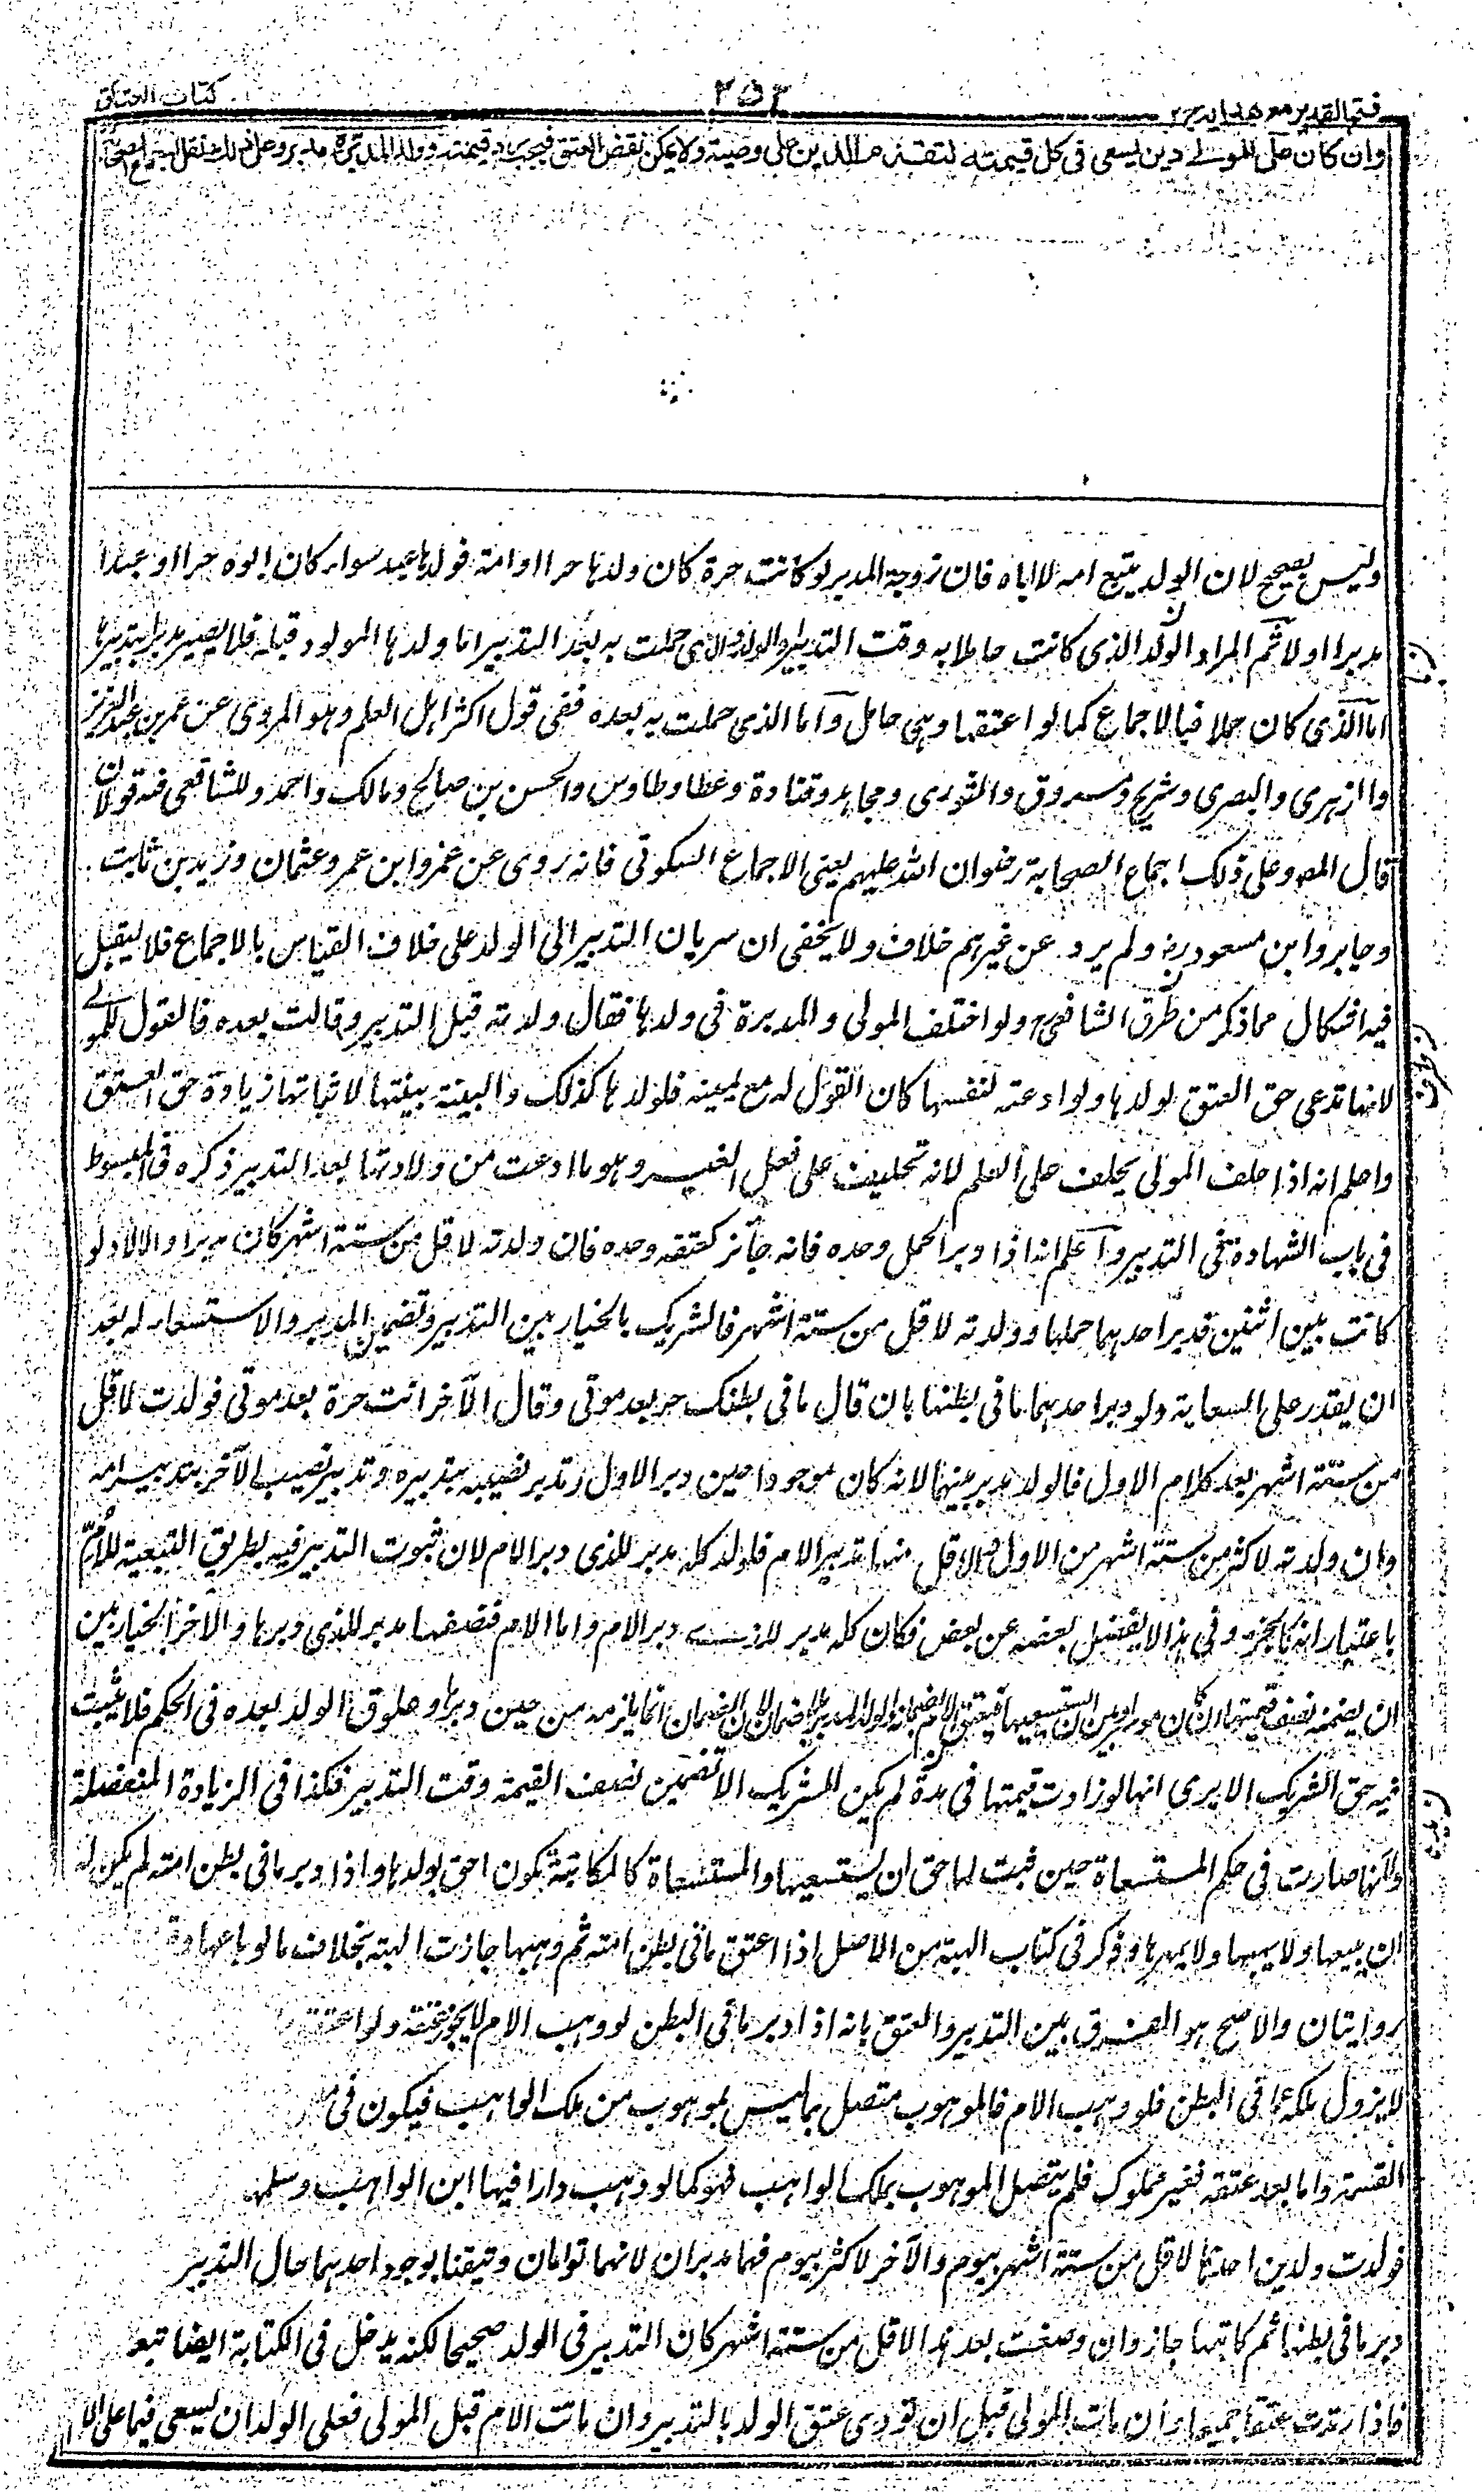 كتاب العتاق
٢٥٣
فتح القدير مع هداية ج ٢
وان كان على المولى دين يسعى فى كل قيمته لتقدم الدين على الوصية ولا يمكن نقض العتق فيجب رد قيمته وولد المدبرة مدبر وعلى ذلك نقل اجماع الصحابة
وليس بصحيح لان الولد يتبع امه لا اباه فان زوجة المدبر لو كانت حرة كان ولدها حرا او امة فولدها عبد سواء كان ابوه حرا او عبدا
مدبرا اولا ثم المراد الولد الذى كانت حاملا به وقت التدبير او الولد الذى حملت به بعد التدبير اما ولدها المولود قبله فلا يصير مدبرا بتدبيرها
اما الذى كان حملا فبالاجماع كما لو اعتقها وهى حامل واما الذى حملت به بعده ففى قول اكثر اهل العلم وهو المروى عن عمر بن عبد العزيز
والزهرى والبصرى وشريح ومسروق والثورى ومجاهد وقتادة وعطا وطاوس والحسن بن صالح ومالك واحمد وللشافعى فيه قولان
قال المص وعلى ذلك اجماع الصحابة رضوان الله عليهم يعنى الاجماع السكوتى فانه روى عن عمر وابن عمر وعثمان وزيد بن ثابت
وجابر وابن مسعود رض ولم يرد عن غيرهم خلاف ولا يخفى ان سريان التدبير الى الولد على خلاف القياس بالاجماع فلا يقبل
فيه اشكال مما ذكر من طرق الشافعى ولو اختلف المولى والمدبرة فى ولدها فقال ولدته قبل التدبير وقالت بعده فالقول للمولى
لانها تدعى حق العتق لولدها ولو ادعته لنفسها كان القول له مع يمينه فلولدها كذلك والبينة بينتها لاثباتها زيادة حق العتق
واعلم انه اذا حلف المولى يحلف على العلم لانه تحليف على فعل الغير وهو ما ادعت من ولادتها بعد التدبير ذكره فى المبسوط
فى باب الشهادة فى التدبير واعلم انه اذا دبر الحمل وحده فانه جائز كعتقه وحده فان ولدته لاقل من ستة اشهر كان مدبرا والا لا ولو
كانت بين اثنين فدبر احدهما حملها وولدته لاقل من ستة اشهر فالشريك بالخيار بين التدبير وتضمين المدبر والاستسعاء له بعد
ان يقدر على السعاية ولو دبر احدهما ما فى بطنها بان قال ما فى بطنك حر بعد موتى وقال الآخر انت حرة بعد موتى فولدت لاقل
من ستة اشهر بعد كلام الاول فالولد مدبر بينهما لانه كان موجودا حين دبر الاول وتدبر نصيبه بتدبيره وتدبير نصيب الآخر بتدبير امه
وان ولدته لاكثر من ستة اشهر من الاول والاقل منها تدبير الام فالولد كله مدبر للذى دبر الام لان ثبوت التدبير فيه بطريق التبعية للام
باعتبار انه كالجزء وفى هذا لا يفضل بعضه عن بعض فكان كله مدبر للذى دبر الام واما الام فنصفها مدبر للذى دبرها والاخر بالخيار بين
ان يضمنه نصف قيمتها ان كان موسرا وبين ان يستسعيها لان الضمان انما يلزمه من حين دبرها وعلوق الولد بعده فى الحكم فلا يثبت
فيه حق الشريك الا يرى انها لو زادت قيمتها فى مدة لم يكن للشريك الا تضمين نصف القيمة وقت التدبير فكذا فى الزيادة المنفصلة
ولانها صارت فى حكم المستسعاة حين ثبت لها حق ان يستسعيها والمستسعاة كالمكاتبة تكون احق بولدها واذا دبر ما فى بطن امته لم يكن له
ان يبيعها ولا يهبها ولا يمهرها وذكر فى كتاب الهبة من الاصل اذا اعتق ما فى بطن امته ثم وهبها جازت الهبة بخلاف ما لو باعها
روايتان والاصح هو الفرق بين التدبير والعتق بانه اذا دبر ما فى البطن لو وهب الام لا يجوز ولو اعتقه
لا يزول ملكه عما فى البطن فلو وهب الام فالموهوب متصل بما ليس بموهوب من ملك الواهب فيكون فى
القسمة واما بعد عتقه فغير مملوك فلم يتصل الموهوب بملك الواهب فهو كما لو وهب دارا فيها ابن الواهب وسلمها
فولدت ولدين احدهما لاقل من ستة اشهر بيوم والآخر لاكثر بيوم فهما مدبران لانهما توامان وتيقنا بوجود احدهما حال التدبير
دبر ما فى بطنها ثم كاتبها جاز وان وضعت بعد هذا لاقل من ستة اشهر كان التدبير فى الولد صحيحا لكنه يدخل فى الكتابة ايضا تبعا
فاذا ادت عتقا جميعا وان مات المولى قبل ان تؤدى عتق الولد بالتدبير وان ماتت الام قبل المولى فعلى الولد ان يسعى فيما على الا